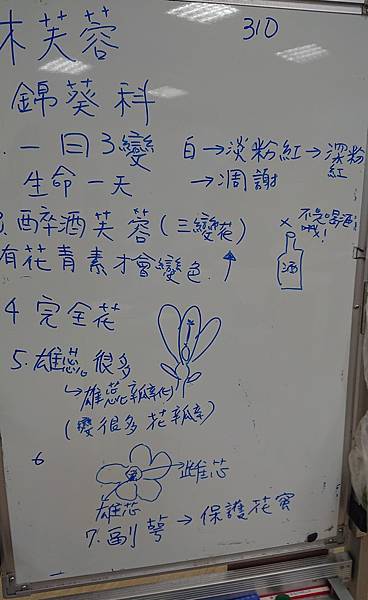 木芙蓉
310
錦葵科
一日3變 白→淡粉紅→深粉紅
生命一天 →凋謝
3.醉酒芙蓉(三變花)
× 不是喝酒哦!
酒
有花青素才會變色 ↑
4 完全花
5.雄蕊很多
↳雄蕊瓣化
(變很多花瓣)
6
→雌芯
雄芯
7.副萼→保護花蜜